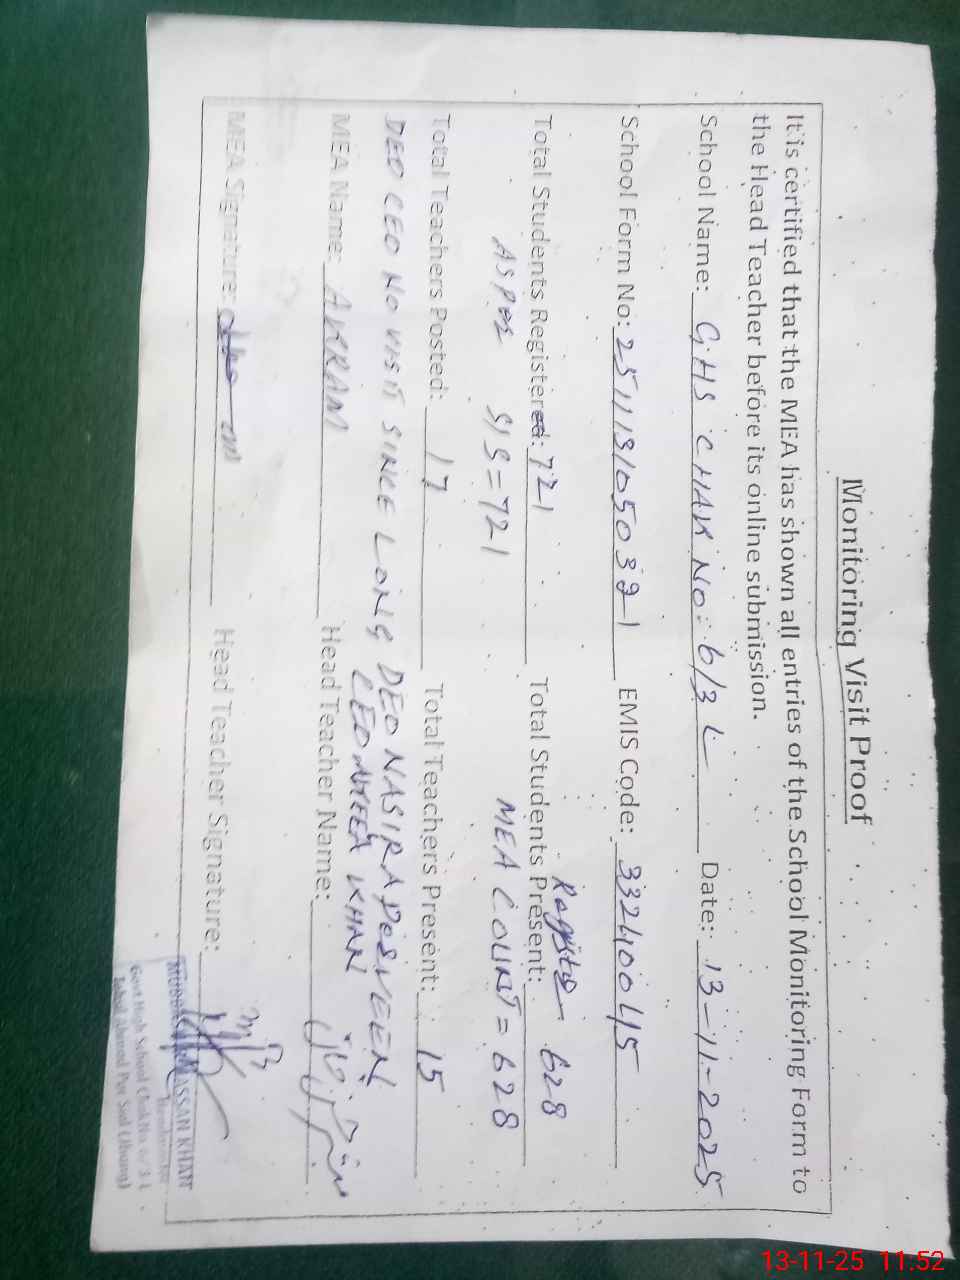 Monitoring Visit Proof
It is certified that the MEA has shown all entries of the School Monitoring Form to
the Head Teacher before its online submission.
School Name: GHS CHAK NO: 6/3 L Date: 13-11-2025
School Form No: EMIS Code: 33240045
Register
Total Students Registered: 721 Total Students Present: 628
AS PER SIS = 721 MEA COUNT = 628
Total Teachers Posted: 17 Total Teachers Present: 15
DEO CEO NO VISIT SINCE LONG DEO NASIRA PERVEEN
CEO KHAN
MEA Name: AKRAM Head Teacher Name:
MEA Signature: Head Teacher Signature:
HASSAN KHAN
Headmaster
Govt High School Chak No 6/3-L
Tehsil Ahmad Pur Sial (Jhang)
13-11-25 11.52